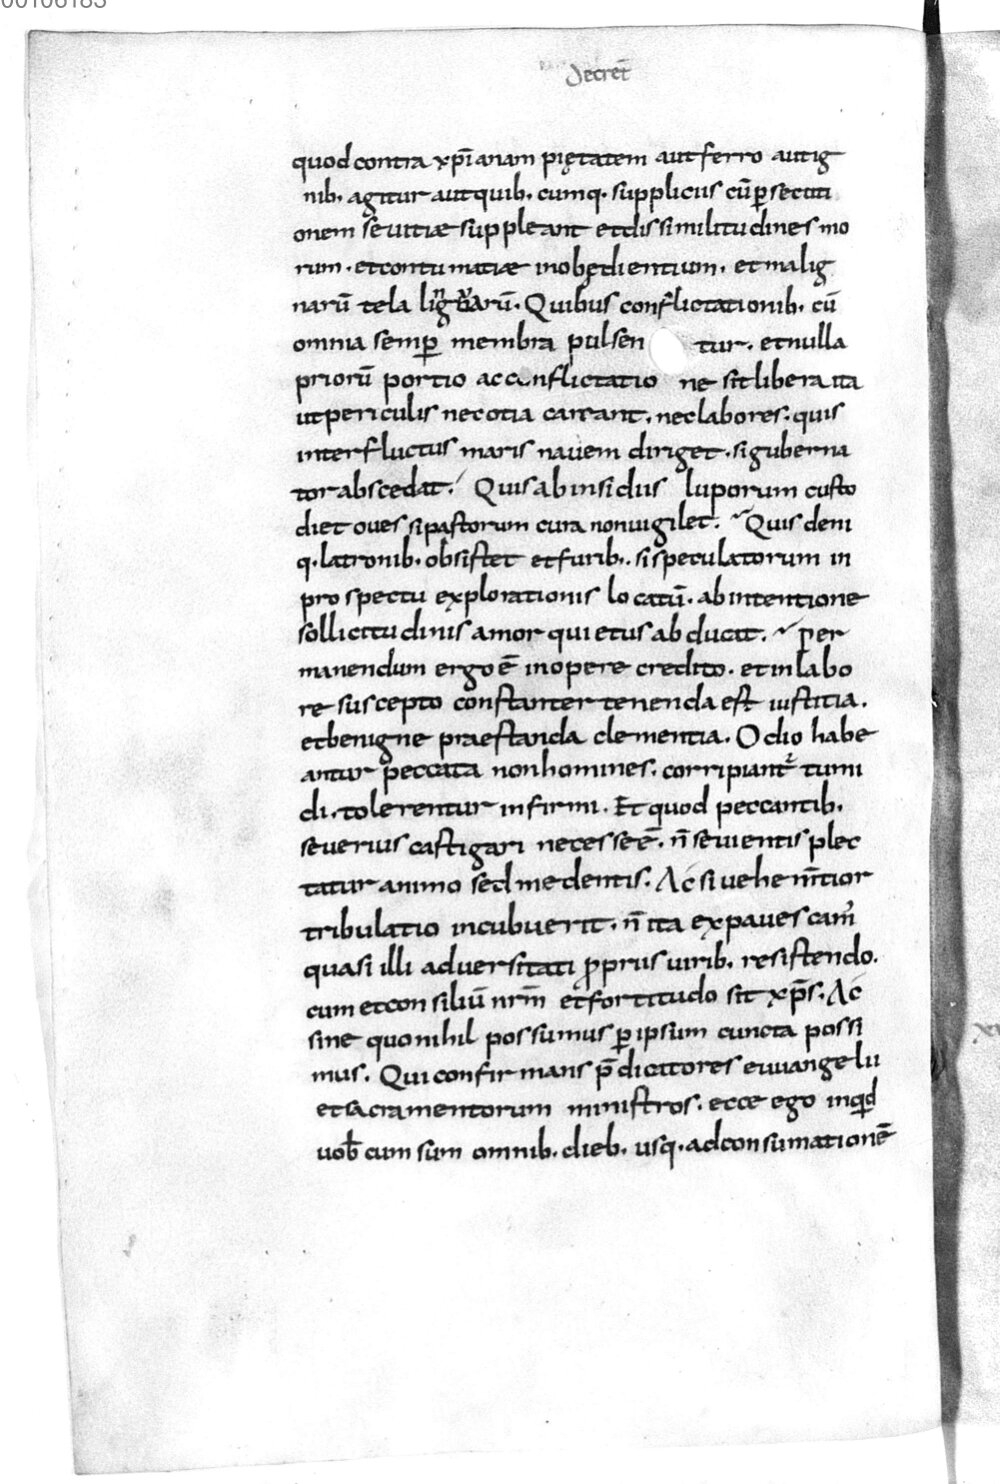 00106183
Decret̄
quod contra xp̄ianam pietatem aut ferro aut ig
nib· agitur aut quib· cumq· suppliciis cū p̱secuti
onem sevitiae suppleant et dissimilitudines mo
rum· et contumatiae inobędientium· et malig
narū tela lingarū· Quibus conflictationib· cū
omnia semp̱ membra pulsen tur· et nulla
priorū portio a conflictatio ne sit libera ita
ut periculis nec otia careant· nec labores· quis
inter fluctus maris navem diriget· si guberna
tor abscedat· Quis ab insidiis luporum custo
diet oves si pastorum cura non vigilet· Quis deni
q· latronib· obsistet et furib·· si speculatorum in
prospectu explorationis locatū· ab intentione
sollicitudinis amor quietus abducit· per
manendum ergo ē in opere credito· et in labo
re suscepto constanter tenenda est iustitia·
et benigne praestanda clementia· Odio habe
antur peccata non homines· corripiant᷑ tumi
di· tolerentur infirmi· Et quod peccantib·
severius castigari necesse ē· n̄ sevientis plec
tatur animo sed medentis· Ac si vehem̄tior
tribulatio incubuerit· n̄ ita expavescam᷒
quasi illi adversitati p̱priis virib· resistendo·
cum et consiliū nrm̄ et fortitudo sit xp̄s· Ac
sine quo nihil possumus p̱ ipsum cuncta possi
mus· Qui confirmans p̄dicatores euuangelii
et sacramentorum ministros· ecce ego inqd̄
vob̄cum sum omnib· dieb· usq· ad consumationē